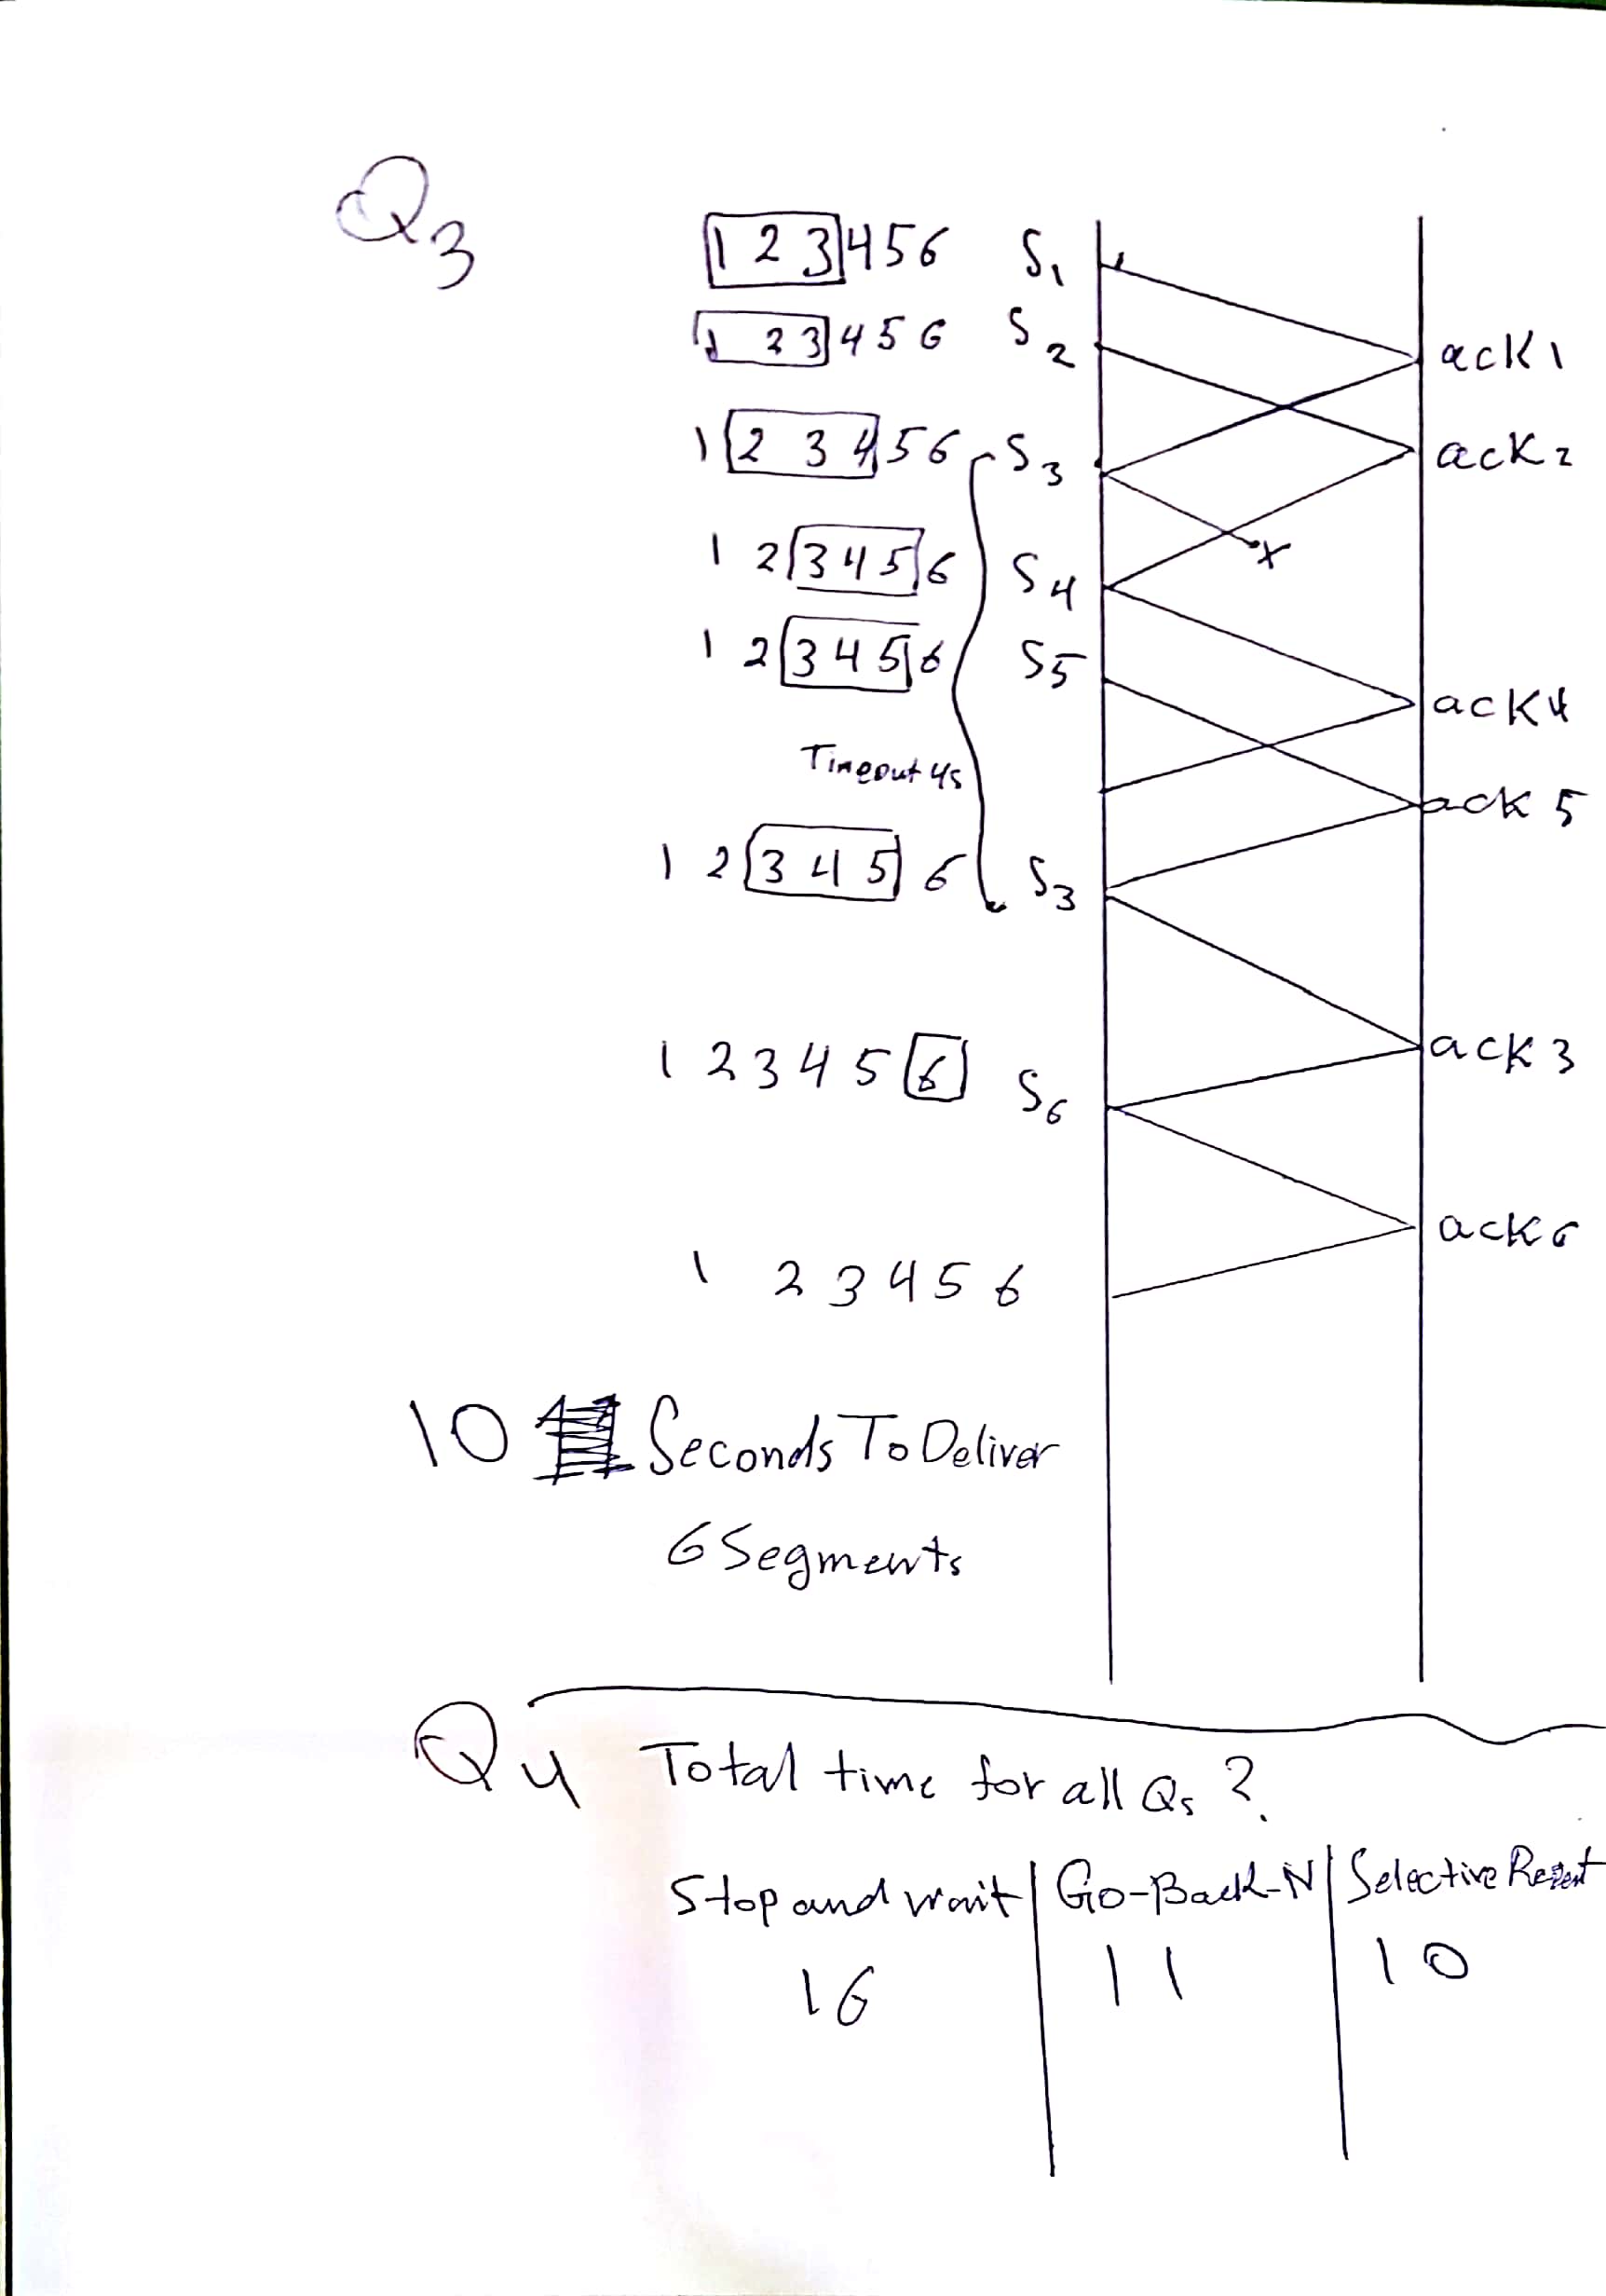 Q3
1 2 3 4 5 6 S1
1 2 3 4 5 6 S2 ack 1
1 2 3 4 5 6 S3 ack 2
x
1 2 3 4 5 6 S4
1 2 3 4 5 6 S5 ack 4
Timeout 4s
ack 5
1 2 3 4 5 6 S3
1 2 3 4 5 6 S6 ack 3
ack 6
1 2 3 4 5 6
10 Seconds To Deliver
6 Segments
Q4 Total time for all Qs ?
Stop and wait Go-Back-N Selective
16 11 10